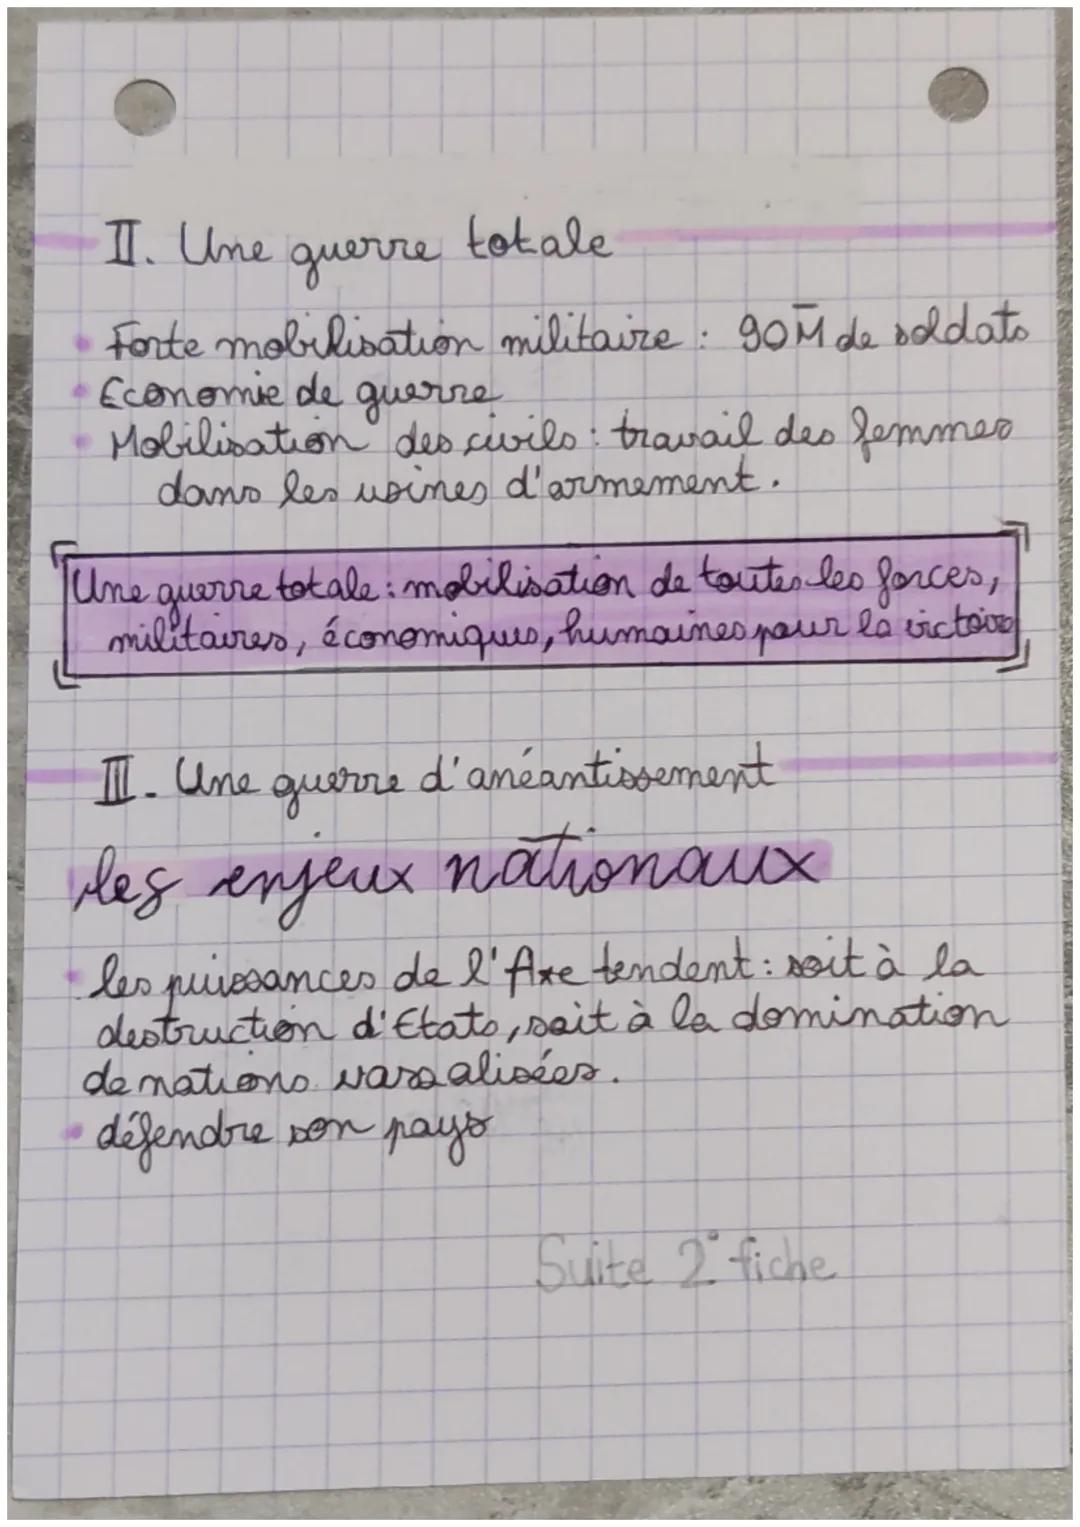 II. Une guerre totale
• Forte mobilisation militaire : 90M de soldats
• Economie de guerre
• Mobilisation des civils : travail des femmes
dans les usines d'armement.
Une guerre totale : mobilisation de toutes les forces,
militaires, économiques, humaines pour la victoire
III. Une guerre d'anéantissement
les enjeux nationaux
• les puissances de l'Axe tendent : soit à la
destruction d'Etats, soit à la domination
de nations vassalisées.
• défendre son pays
Suite 2° fiche